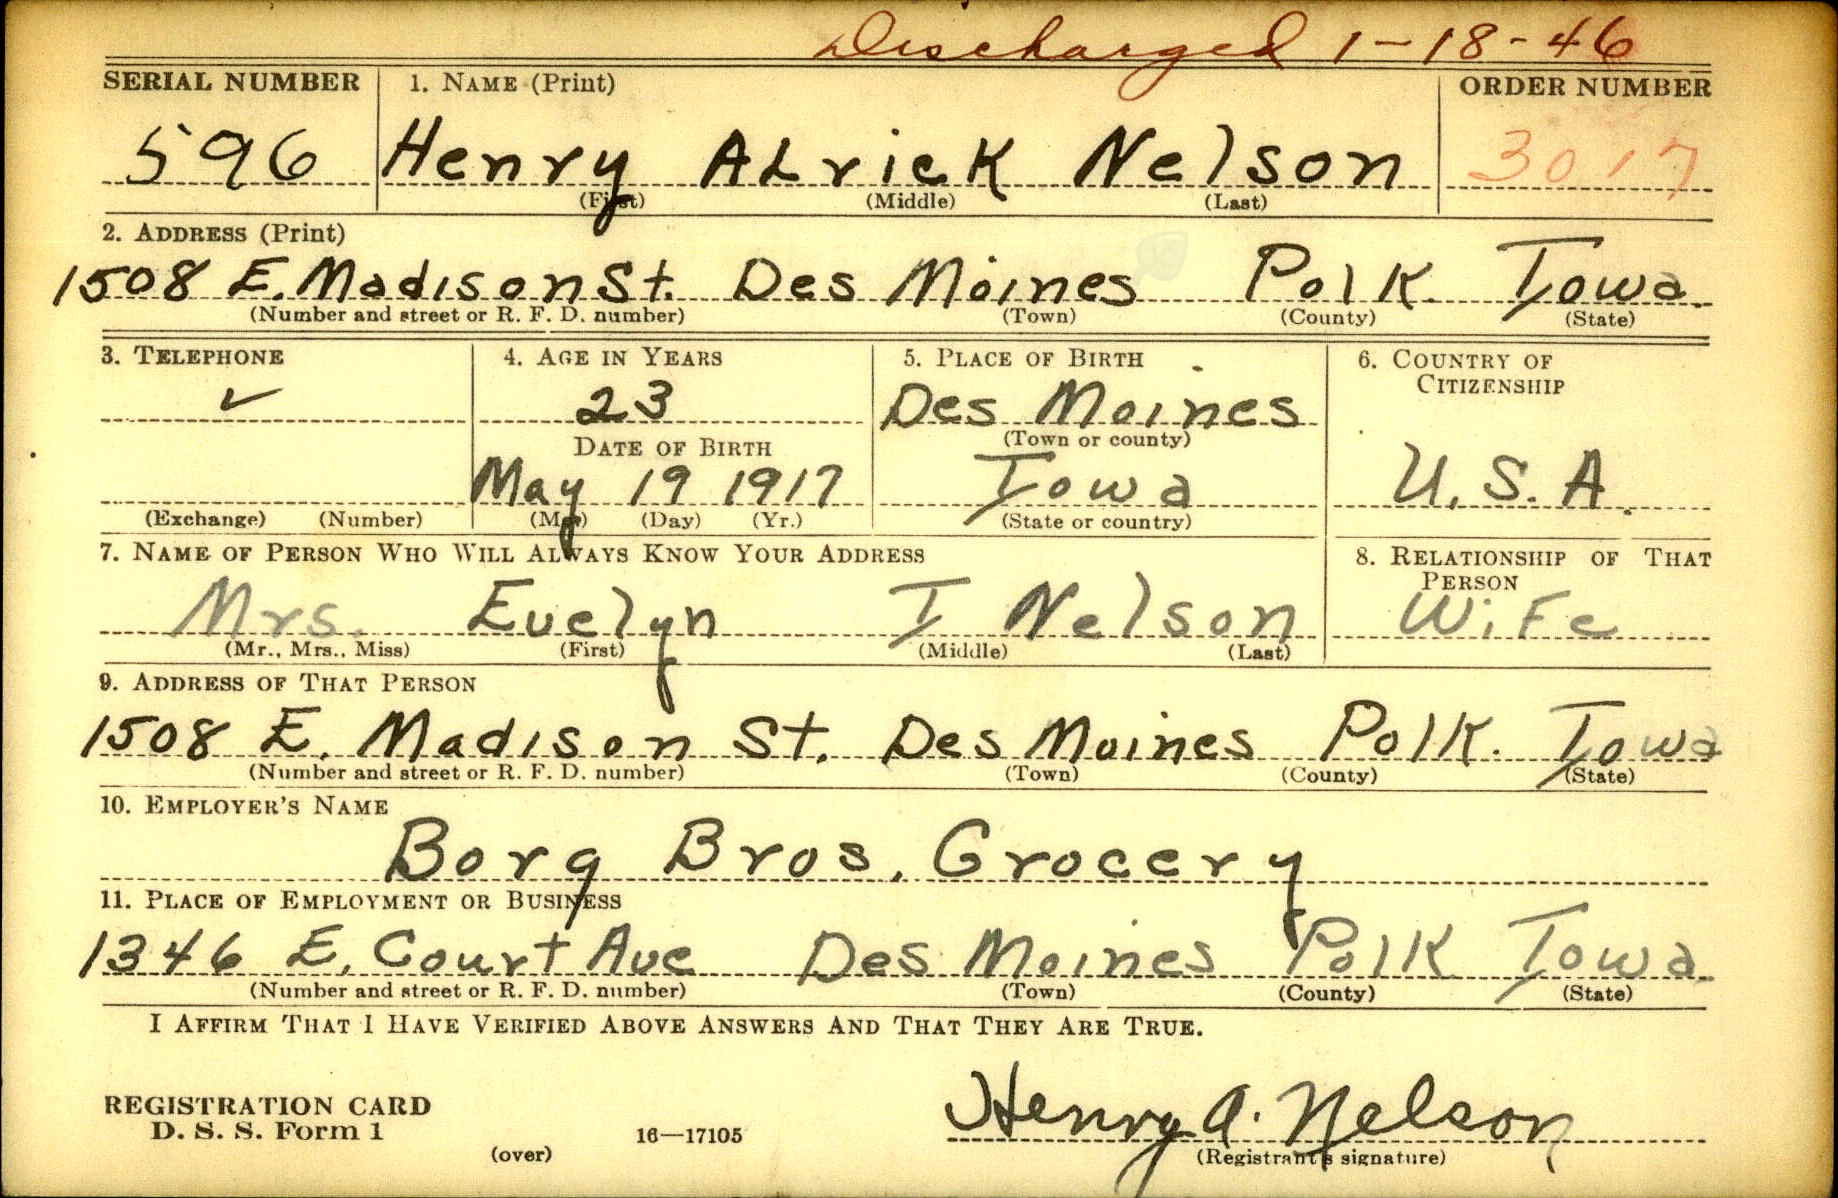 Discharged 1-18-46
SERIAL NUMBER 1. NAME (Print) ORDER NUMBER
596 Henry ALrick Nelson 3017
(First) (Middle) (Last)
2. ADDRESS (Print)
1508 E. Madison St. Des Moines Polk Iowa
(Number and street or R. F. D. number) (Town) (County) (State)
3. TELEPHONE 4. AGE IN YEARS 5. PLACE OF BIRTH 6. COUNTRY OF CITIZENSHIP
✓ 23 Des Moines
DATE OF BIRTH (Town or county)
May 19 1917 Iowa U.S.A.
(Exchange) (Number) (Mo.) (Day) (Yr.) (State or country)
7. NAME OF PERSON WHO WILL ALWAYS KNOW YOUR ADDRESS 8. RELATIONSHIP OF THAT PERSON
Mrs. Evelyn I Nelson Wife
(Mr., Mrs., Miss) (First) (Middle) (Last)
9. ADDRESS OF THAT PERSON
1508 E. Madison St. Des Moines Polk. Iowa
(Number and street or R. F. D. number) (Town) (County) (State)
10. EMPLOYER'S NAME
Borg Bros. Grocery
11. PLACE OF EMPLOYMENT OR BUSINESS
1346 E. Court Ave Des Moines Polk Iowa
(Number and street or R. F. D. number) (Town) (County) (State)
I AFFIRM THAT I HAVE VERIFIED ABOVE ANSWERS AND THAT THEY ARE TRUE.
Henry A. Nelson
REGISTRATION CARD
D. S. S. Form 1 16—17105
(over) (Registrant's signature)